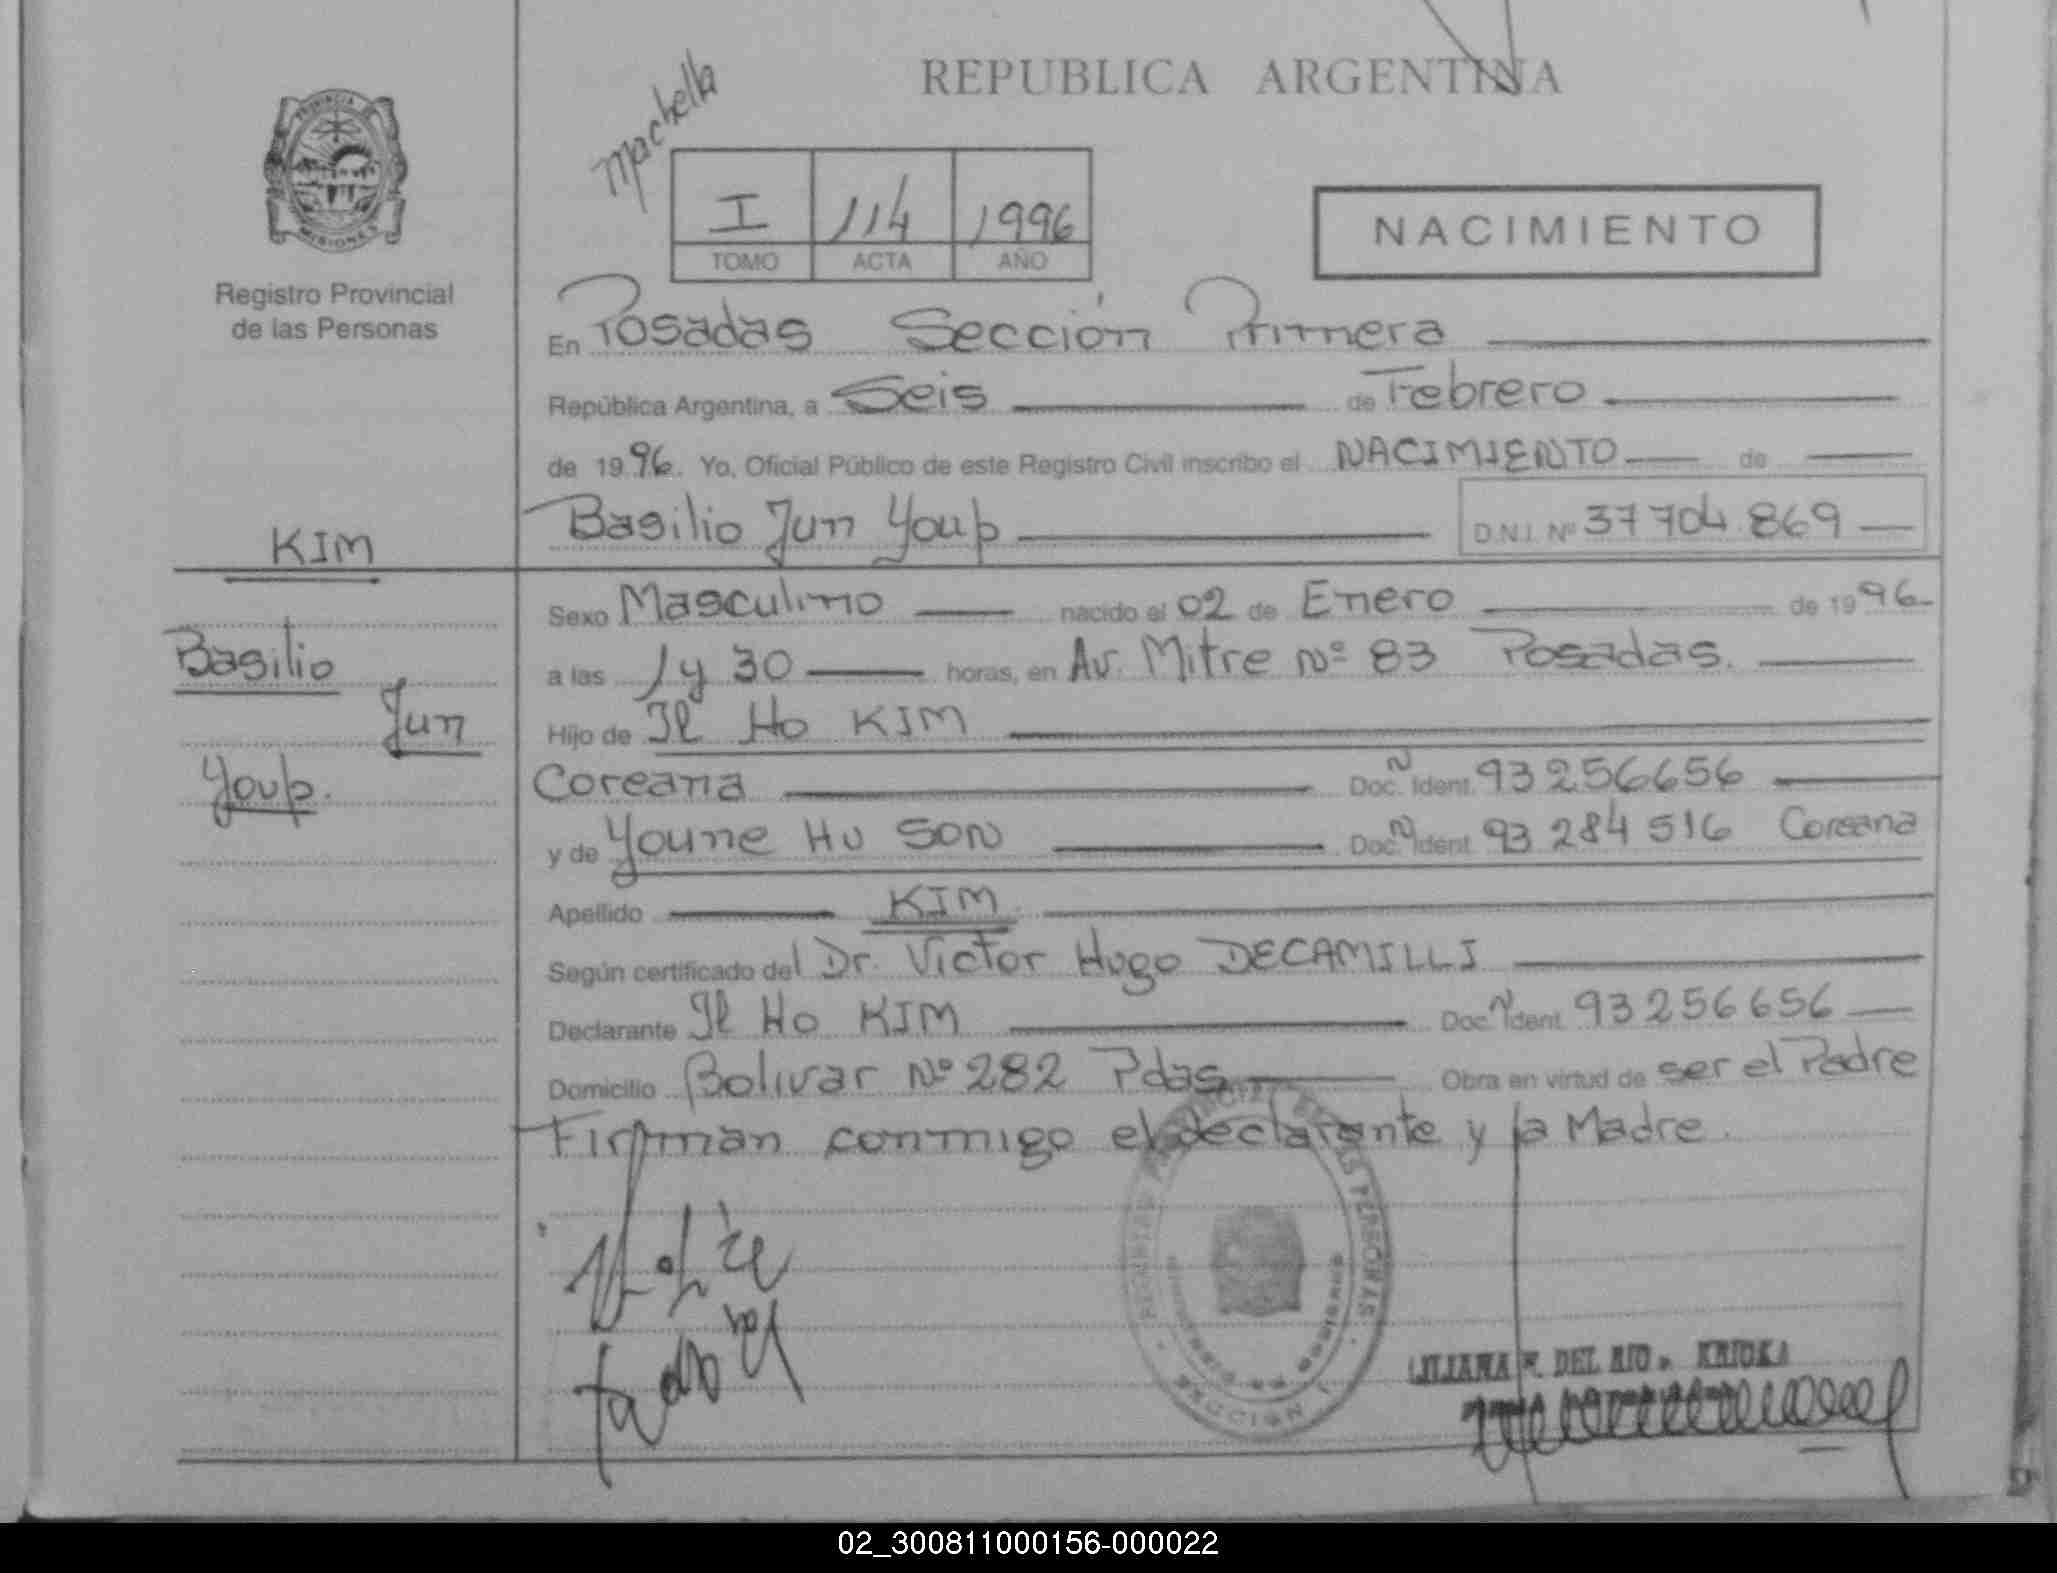 REPUBLICA ARGENTINA
Machella
PROVINCIA DE MISIONES
Registro Provincial
de las Personas
I 114 1996
TOMO ACTA AÑO
NACIMIENTO
En Posadas Sección Primera
República Argentina, a Seis de Febrero
de 1996. Yo, Oficial Público de este Registro Civil inscribo el NACIMIENTO de
Basilio Jun Youp D.N.I. Nº 37704.869
KIM
Basilio
Jun
Youp.
Sexo Masculino nacido el 02 de Enero de 1996
a las 1 y 30 horas, en Av. Mitre Nº 83 Posadas.
Hijo de Il Ho KIM
Coreana Doc. N Ident. 93256656
y de Youne Hu SON Doc. N Ident. 93284516 Coreana
Apellido KIM
Según certificado del Dr. Victor Hugo DECAMILLI
Declarante Il Ho KIM Doc. N Ident. 93256656
Domicilio Bolivar Nº 282 Pdas Obra en virtud de ser el Padre
Firman conmigo el declarante y la Madre.
LILIANA DEL RIO
02_300811000156-000022